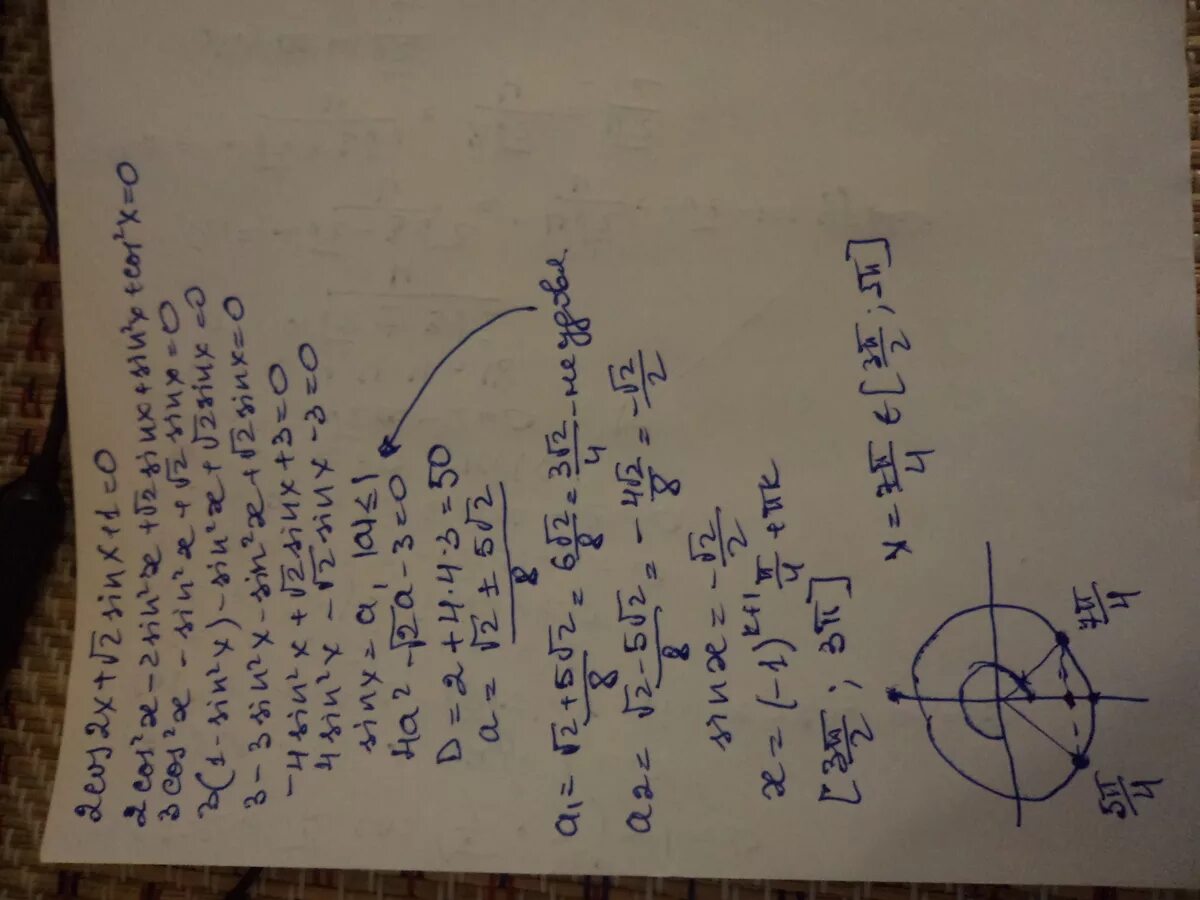 2cos2x+√2 sinx+1=0
2cos²x-2sin²x+√2 sinx+sin²x+cos²x=0
3cos²x-sin²x+√2 sinx=0
3(1-sin²x)-sin²x+√2 sinx=0
3-3sin²x-sin²x+√2 sinx=0
-4sin²x+√2 sinx+3=0
4sin²x-√2 sinx-3=0
sinx=a, |a|≤1
4a²-√2a-3=0
D=2+4·4·3=50
a=(√2±5√2)/8
a₁=(√2+5√2)/8=6√2/8=3√2/4-не удовл.
a2=(√2-5√2)/8=-4√2/8=-√2/2
sinx=-√2/2
x=(-1)ᵏ⁺¹ π/4+πk
[3π/2; 3π]
x=7π/4 ∈ [3π/2; 3π]
5π/4
7π/4